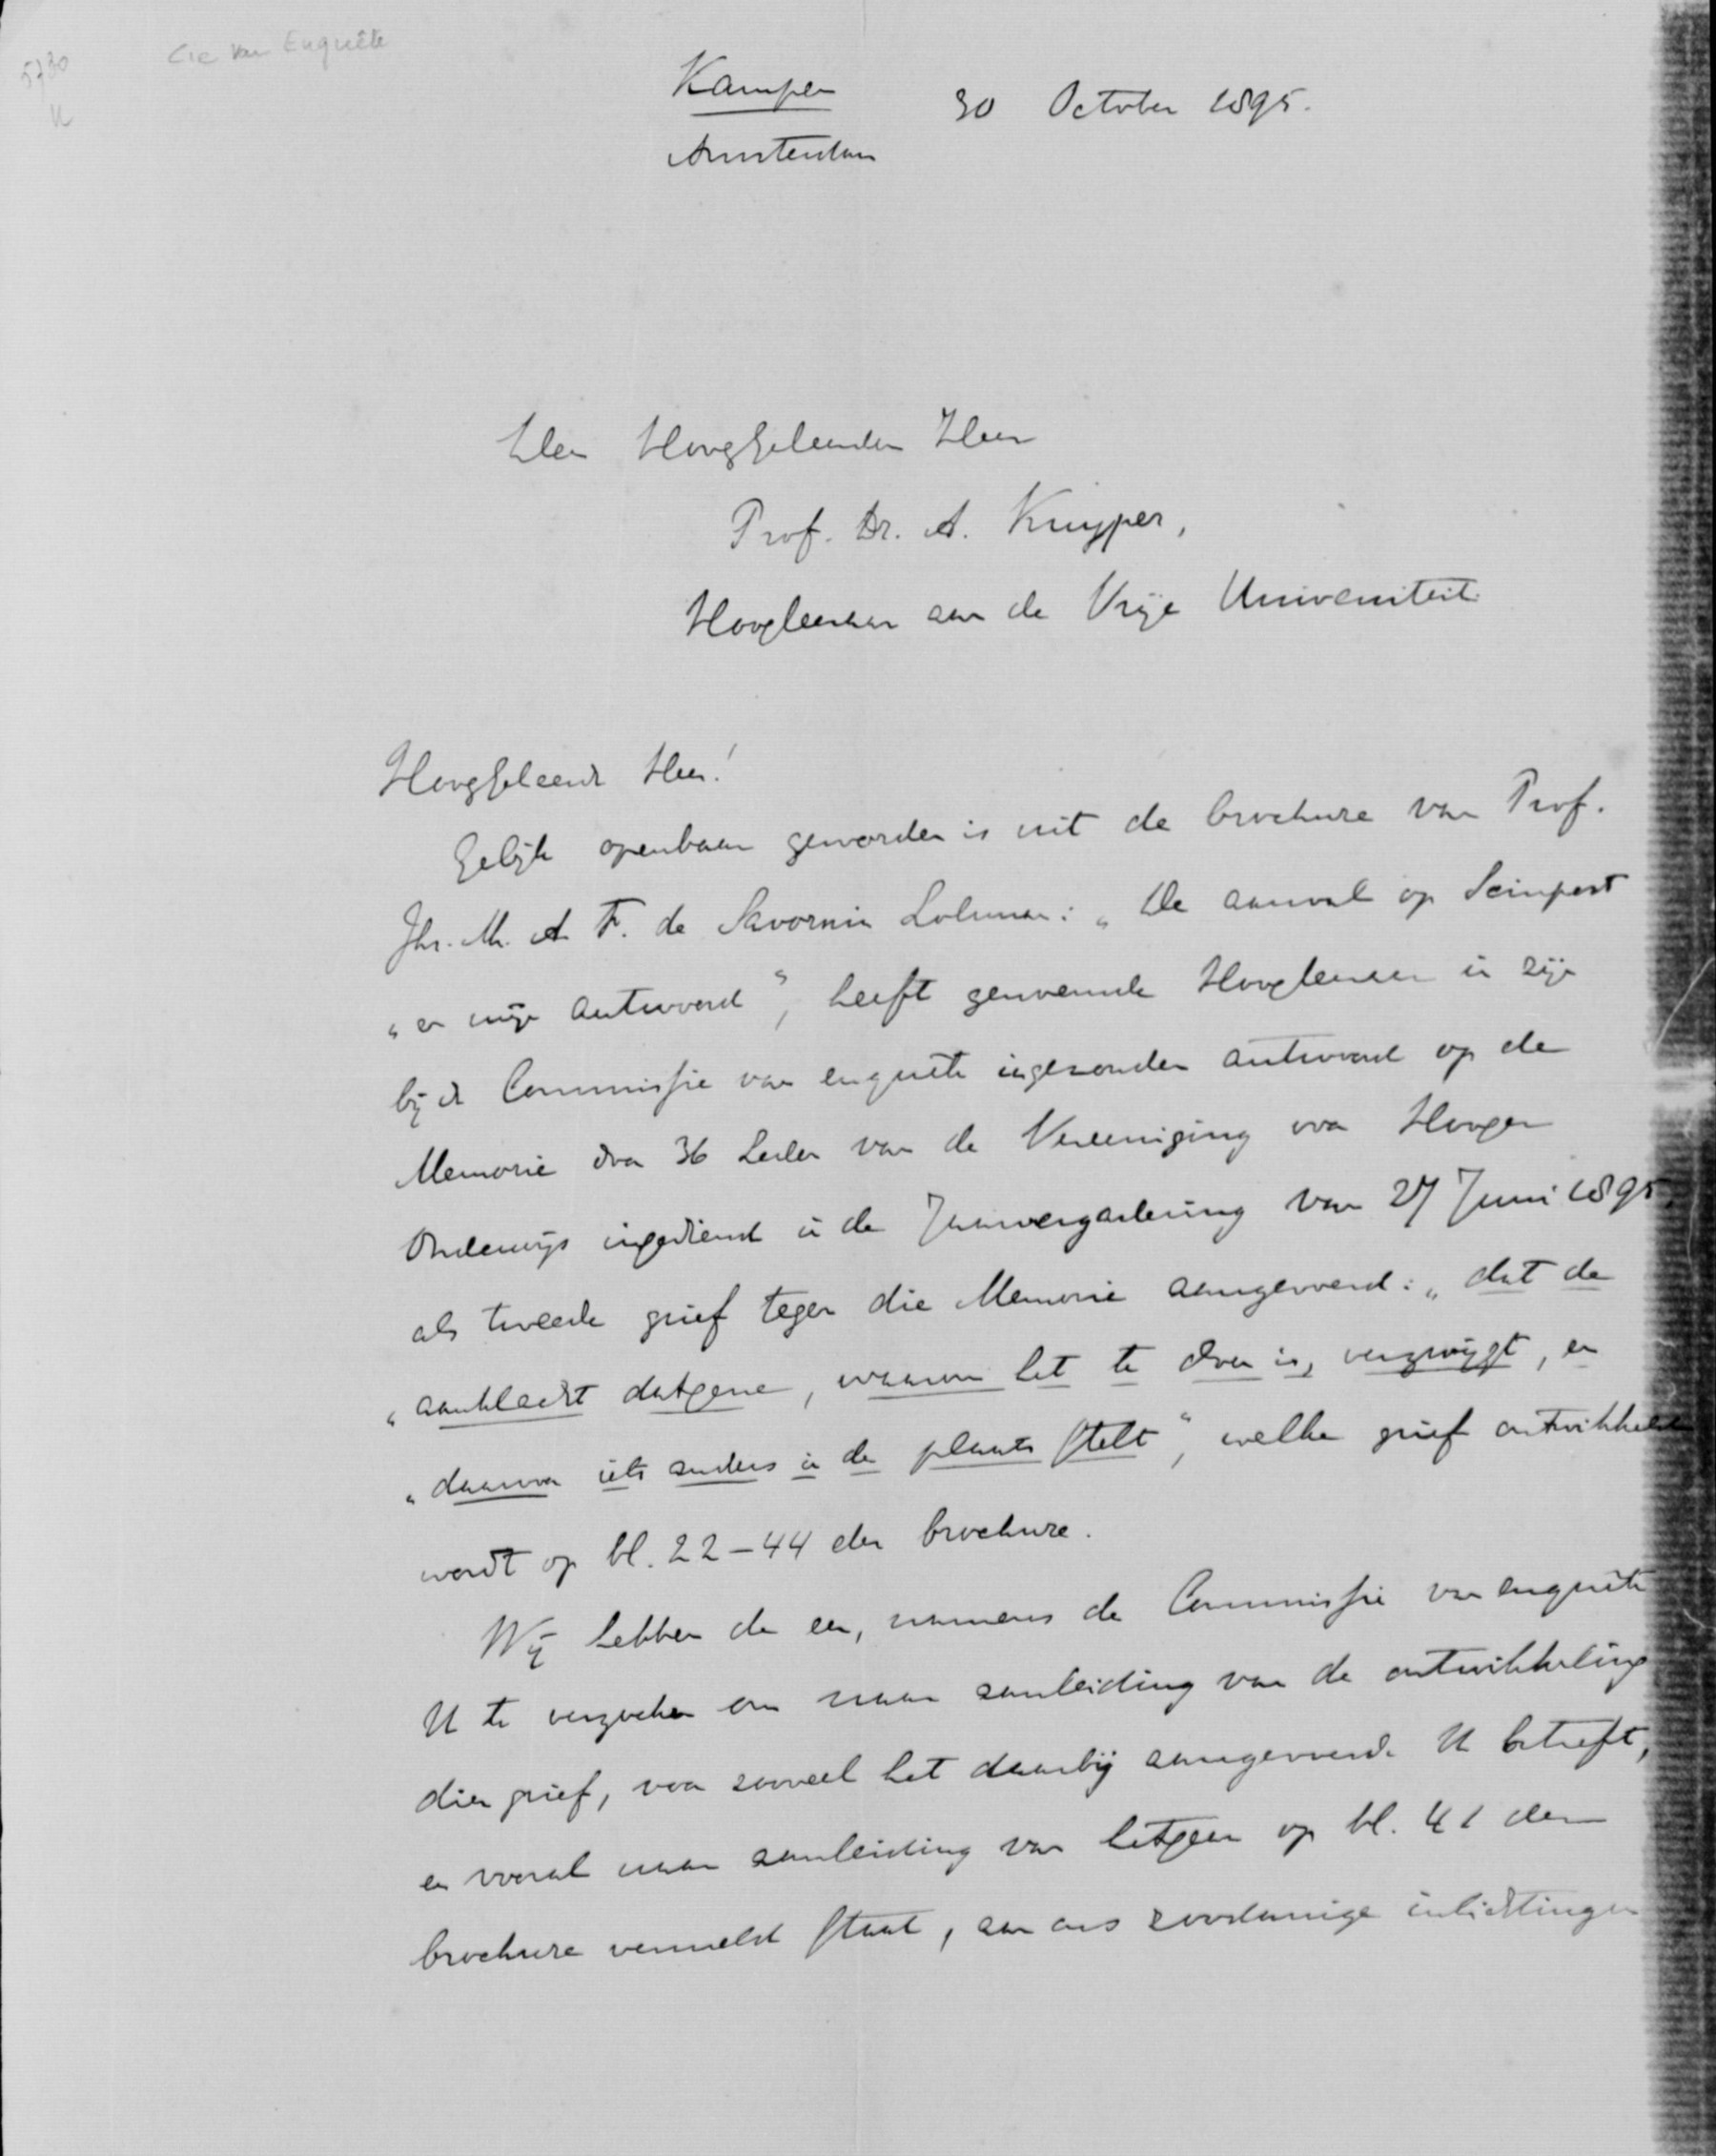 Cie van Enquête
5730
K
Kampen 30 October 1895.
Amsterdam
Den HoogGeleerden Heer
Prof. Dr. A. Kuyper,
Hoogleeraar aan de Vrije Universiteit.
HoogGeleerde Heer!
Gelijk openbaar geworden is uit de brochure van Prof.
Jhr. Mr. A. F. de Savornin Lohman: „De aanval op Seinpost
„en mijn antwoord”, heeft genoemde Hoogleeraar in zijn
bij de Commissie van enquête ingezonden antwoord op de
Memorie door 36 Leden van de Vereeniging voor Hooger
Onderwijs ingediend in de Jaarvergadering van 27 Juni 1895,
als tweede grief tegen die Memorie aangevoerd: „dat de
„aanklacht datgene, waarom het te doen is, verzwijgt, en
„daarvoor iets anders in de plaats stelt”, welke grief ontwikkeld
wordt op bl. 22–44 der brochure.
Wij hebben de eer, namens de Commissie van enquête
U te verzoeken om naar aanleiding van de ontwikkeling
dier grief, voor zooveel het daarbij aangevoerde U betreft,
en vooral naar aanleiding van hetgeen op bl. 41 der
brochure vermeld staat, aan ons zoodanige inlichtingen